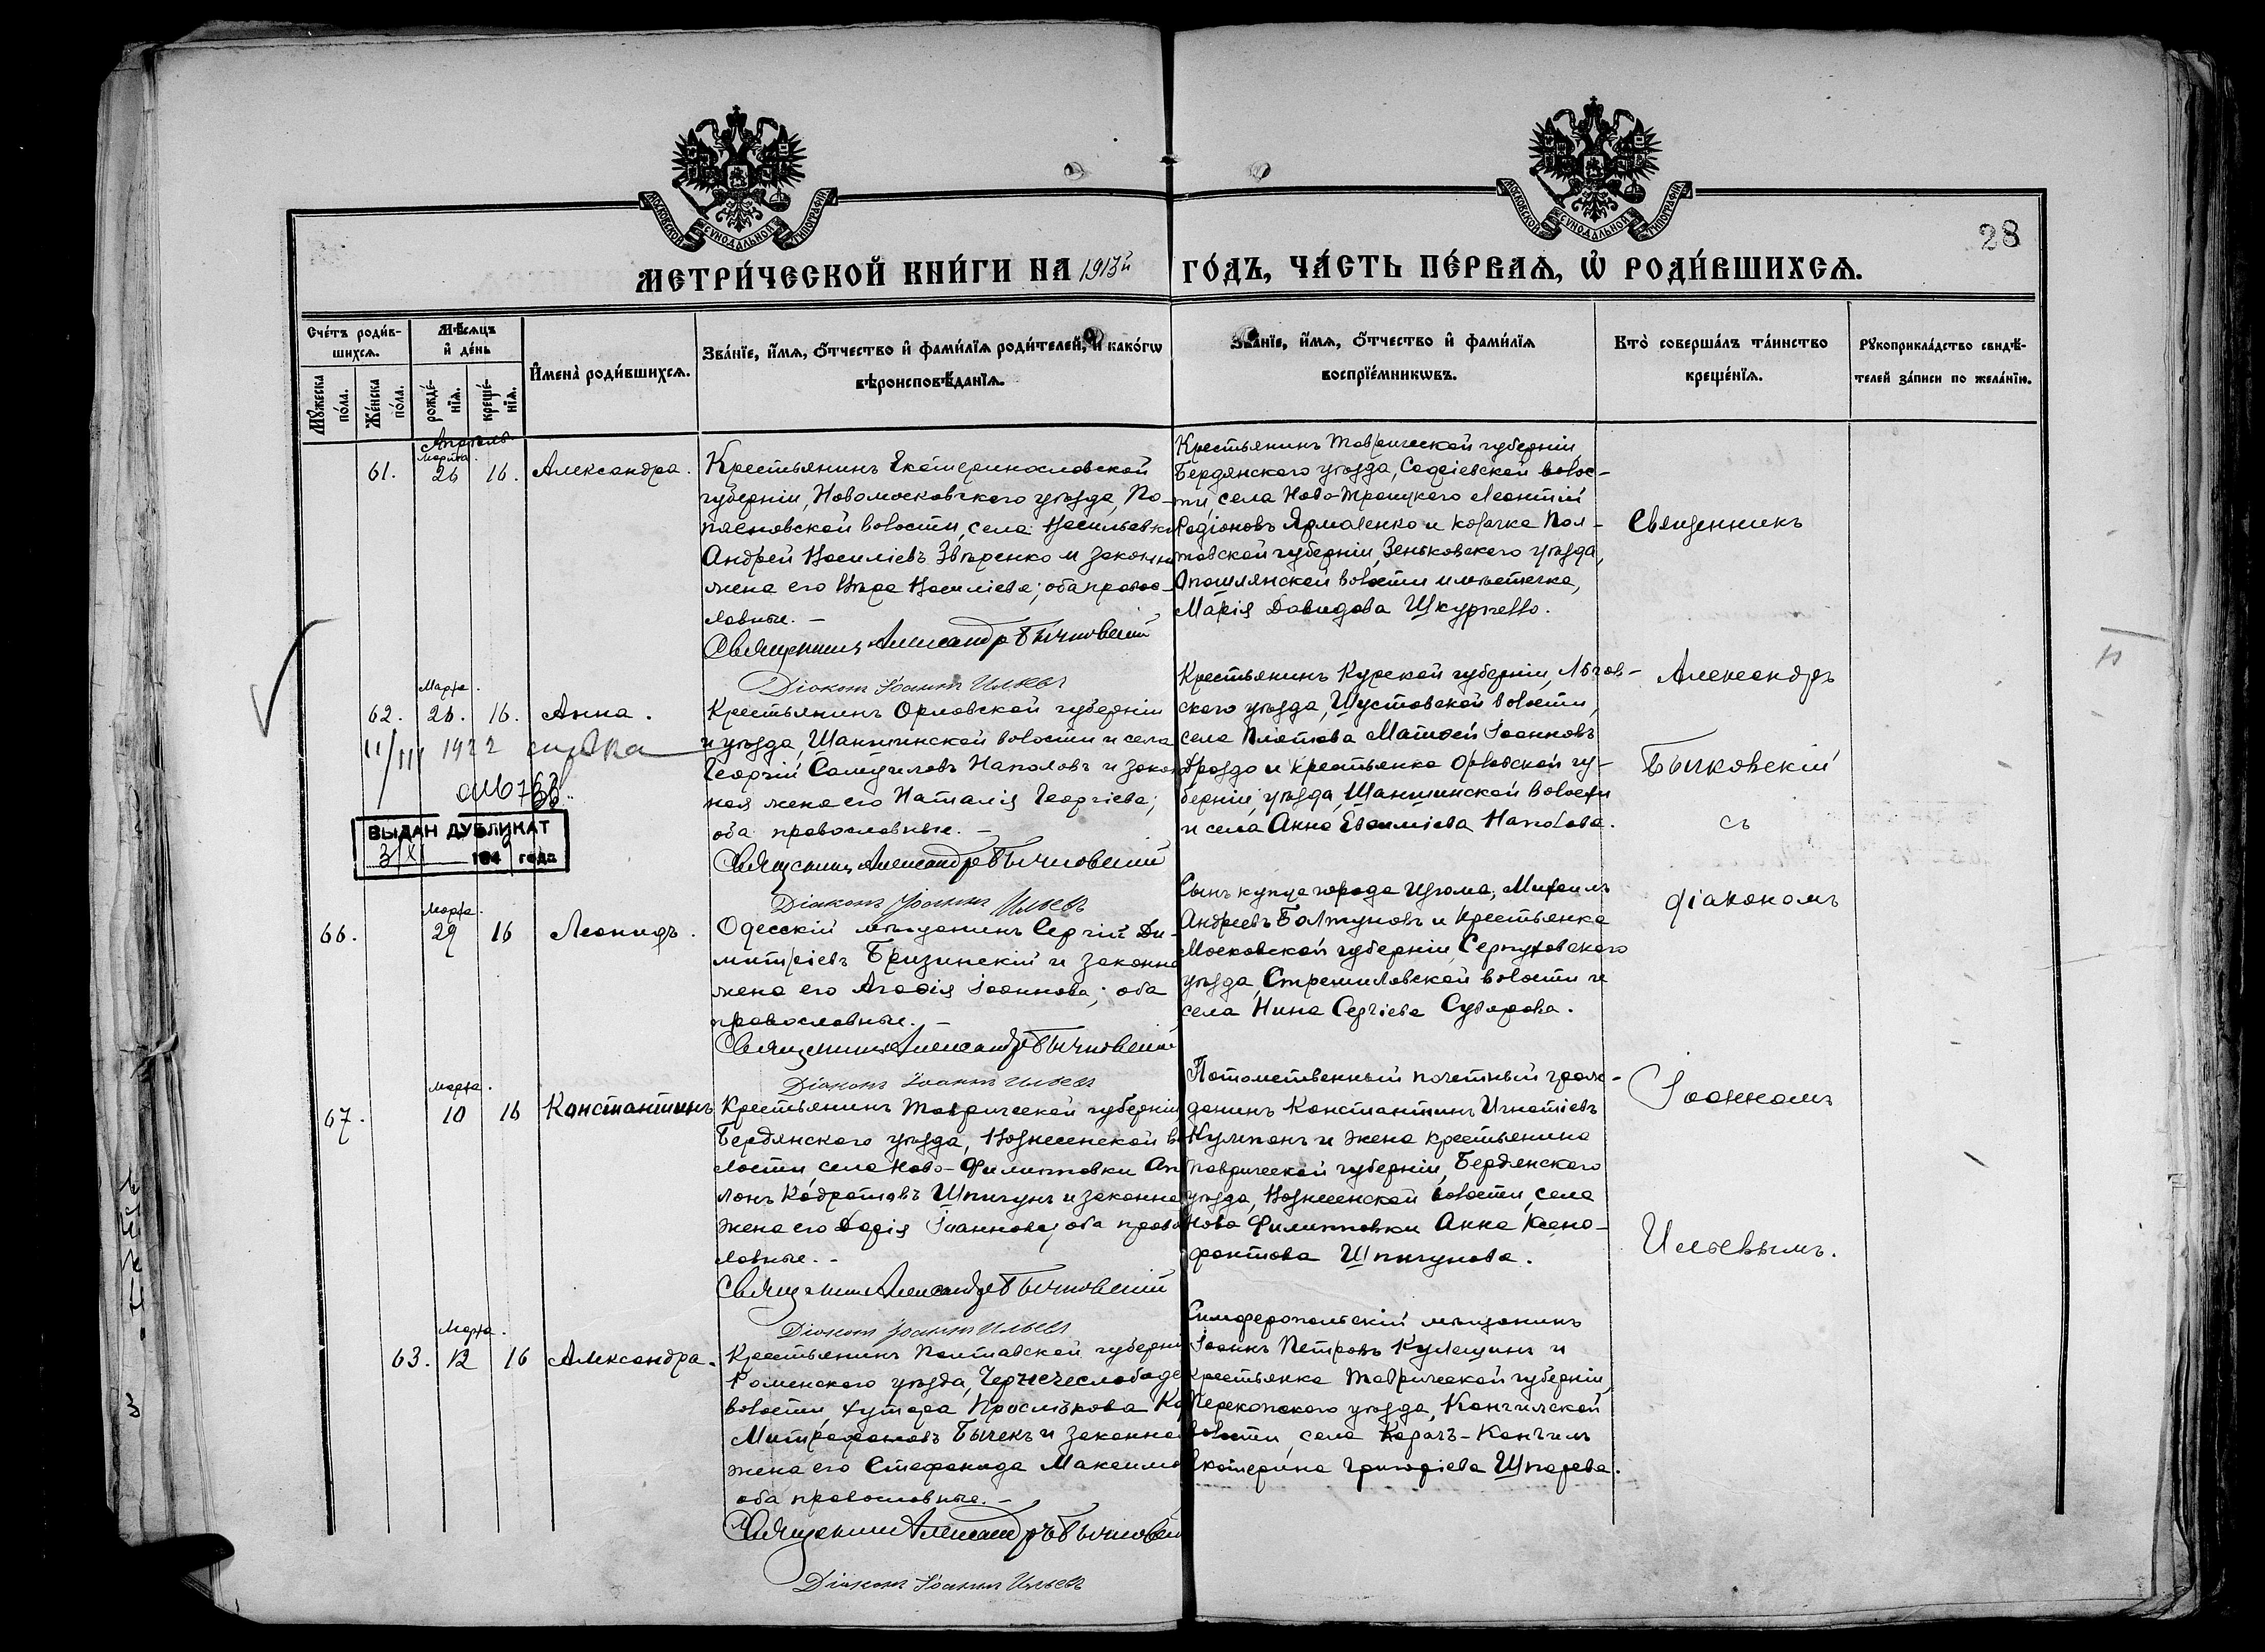 МОСКОВСКОЙ СУНОДАЛЬНОЙ ТИПОГРАФІИ
МОСКОВСКОЙ СУНОДАЛЬНОЙ ТИПОГРАФІИ
28
МЕТРИ́ЧЕСКОЙ КНИ́ГИ НА 1913й ГО́ДЪ, ЧА́СТЬ ПЕ́РВАѦ, Ѡ҆ РОДИ́ВШИХСѦ.
Сче́тъ роди́в-
шихсѧ.
Мѣ́сѧцъ
и҆ де́нь
И҆мена̀ роди́вшихсѧ.
Зва́нїе, и҆́мѧ, ѻ҆́тчество и҆ фами́лїѧ роди́телей, и҆ како́гѡ
вѣроисповѣ́данїѧ.
Зва́нїе, и҆́мѧ, ѻ҆́тчество и҆ фами́лїѧ
воспрїе́мникѡвъ.
Кто̀ соверша́лъ та́инство
креще́нїѧ.
Рꙋкоприкла́дство свидѣ́-
телей за́писи по жела́нїю.
Мꙋ́жеска
по́ла.
Же́нска
по́ла.
рожде́-
нїѧ.
креще́-
нїѧ.
Апрель
Марта.
61. 26 16. Александра.
Крестьянинъ Екатеринославской
губерніи, Новомосковскаго уѣзда, По-
пасновской волости, села Васильевки
Андрей Василіевъ Звѣренко и законная
жена его Вѣра Василіева; оба правос-
лавные. –
Священникъ Александръ Бычковскій
Діаконъ Іоаннъ Ильевъ
Крестьянинъ Таврической губерніи,
Бердянскаго уѣзда, Софіевской волос-
ти, села Ново-Троицкаго Леонтій
Родіоновъ Ярмаленко и козачка Пол-
тавской губерніи, Зеньковскаго уѣзда,
Опошлянской волости и мѣстечка,
Марія Давидова Шкурпелло.
Священникъ
Александръ
Бычковскій
съ
діакономъ
Іоанномъ
Ильевымъ.
Марта.
62. 26. 16. Анна.
11/III 1922 справка
ВЫДАН ДУБЛИКАТ
3/XI 194 года
Крестьянинъ Орловской губерніи
и уѣзда, Шаншинской волости и села
Георгій Самуиловъ Наполовъ и закон-
ная жена его Наталія Георгіева;
оба православные. –
Священникъ Александръ Бычковскій
Діаконъ Іоаннъ Ильевъ
Крестьянинъ Курской губерніи, Льгов-
скаго уѣзда, Шустовской волости,
села Матѳей Іоанновъ
Дроздо и крестьянка Орловской гу-
берніи, уѣзда, Шаншинской волости
и села Анна Евѳиміева Наполова.
Марта.
66. 29 16 Леонидъ.
Одесскій мѣщанинъ Сергій Ди-
митріевъ Бризинскій и законная
жена его Агаѳія Іоаннова; оба
православные. –
Священникъ Александръ Бычковскій
Діаконъ Іоаннъ Ильевъ
Сынъ купца города Изюма, Михаилъ
Андреевъ Болтуновъ и крестьянка
Московской губерніи, Серпуховскаго
уѣзда, Стремиловской волости и
села Нина Сергіева Суворова.
Марта.
67. 10 16 Константинъ
Крестьянинъ Таврической губерніи
Бердянскаго уѣзда, Вознесенской во-
лости, села Ново-Филипповки Ап
лонъ Кодратовъ Шпигунъ и законная
жена его Дарія Іоаннова; оба право
лавные. –
Священникъ Александръ Бычковскій
Діаконъ Іоаннъ Ильевъ
Потомственный почетный граж-
данинъ Константинъ Игнатіевъ
Кулпанъ и жена крестьянина
Таврической губерніи, Бердянскаго
уѣзда, Вознесенской волости, села
Ново Филипповки Анна Ксено-
фонтова Шпигунова.
Марта.
63. 12 16 Александра.
Крестьянинъ Полтавской губерніи
Роменскаго уѣзда, Чернечеслободс
волости, хутора
Митрофановъ Бычекъ и законная
жена его Стефанида Максимо
оба православные. –
Священникъ Александръ Бычковскій
Діаконъ Іоаннъ Ильевъ
Симферопольскій мѣщанинъ
Іоаннъ Петровъ Кулешинъ и
крестьянка Таврической губерніи,
Перекопскаго уѣзда, Кангилской
волости, села Карачъ-Кангилъ
Екатерина Григоріева Шпарева.